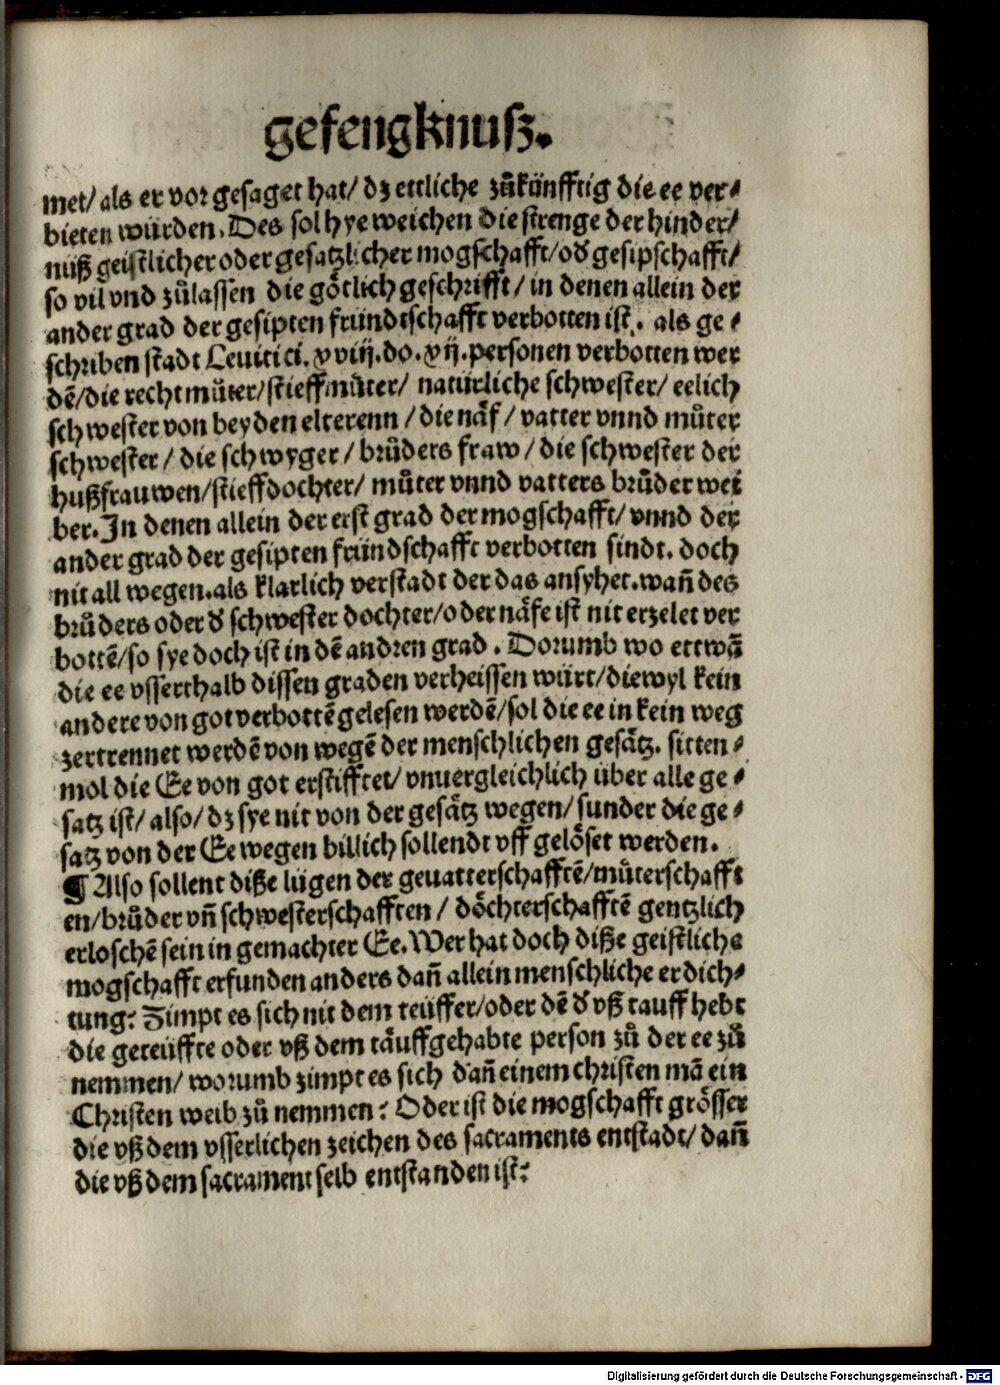 gefengknusz.
met/ als er vor gesaget hat/ dz ettliche zůkünfftig die ee ver⸗
bieten würden. Des sol hye weichen die strenge der hinder/
nüß geistlicher oder gesatzlicher mogschafft/ od̕ gesipschafft/
so vil vnd zůlassen die götlich geschrifft/ in denen allein der
ander grad der gesipten fründtschafft verbotten ist. als ge⸗
schriben stadt Leuitici. xviij. do. xij. personen verbotten wer
dē/ die recht můter/ stieffmůter/ natürliche schwester/ eelich
schwester von beyden elterenn / die näf / vatter vnnd můter
schwester / die schwyger / brůders fraw / die schwester der
hußfrauwen/ stieffdochter/ můter vnnd vatters brůder wei
ber. In denen allein der erst grad der mogschafft/ vnnd der
ander grad der gesipten fründschafft verbotten sindt. doch
nit all wegen. als klarlich verstadt der das ansyhet. wañ des
brůders oder d̕ schwester dochter/ oder näfe ist nit erzelet ver
bottē/ so sye doch ist in dē andren grad . Dorumb wo ettwā
die ee vsserthalb dissen graden verheissen würt/ diewyl kein
andere von got verbottē gelesen werdē/ sol die ee in kein weg
zertrennet werdē von wegē der menschlichen gesätz. sitten⸗
mol die Ee von got erstifftet/ vnuergleichlich über alle ge⸗
satz ist/ also/ dz sye nit von der gesätz wegen/ sunder die ge⸗
satz von der Ee wegen billich sollendt vff gelöset werden.
¶ Also sollent diße lügen der geuatterschafftē/ můterschafft
en/ brůder vñ schwesterschafften / döchterschafftē gentzlich
erloschē sein in gemachter Ee. Wer hat doch diße geistliche
mogschafft erfunden anders dañ allein menschliche erdich⸗
tung? Zimpt es sich nit dem teüffer/ oder dē d̕ vß tauff hebt
die geteüffte oder vß dem täuff gehabte person zů der ee zů
nemmen/ worumb zimpt es sich dañ einem christen mā ein
Christen weib zů nemmen? Oder ist die mogschafft grösser
die vß dem vsserlichen zeichen des sacraments entstadt/ dañ
die vß dem sacrament selb entstanden ist?
Digitalisierung gefördert durch die Deutsche Forschungsgemeinschaft - DFG